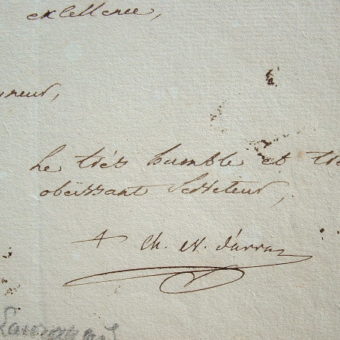 excellence,
neur,
Le très humble et trè
obéissant Serviteur,
+ Ch. M. d'arras